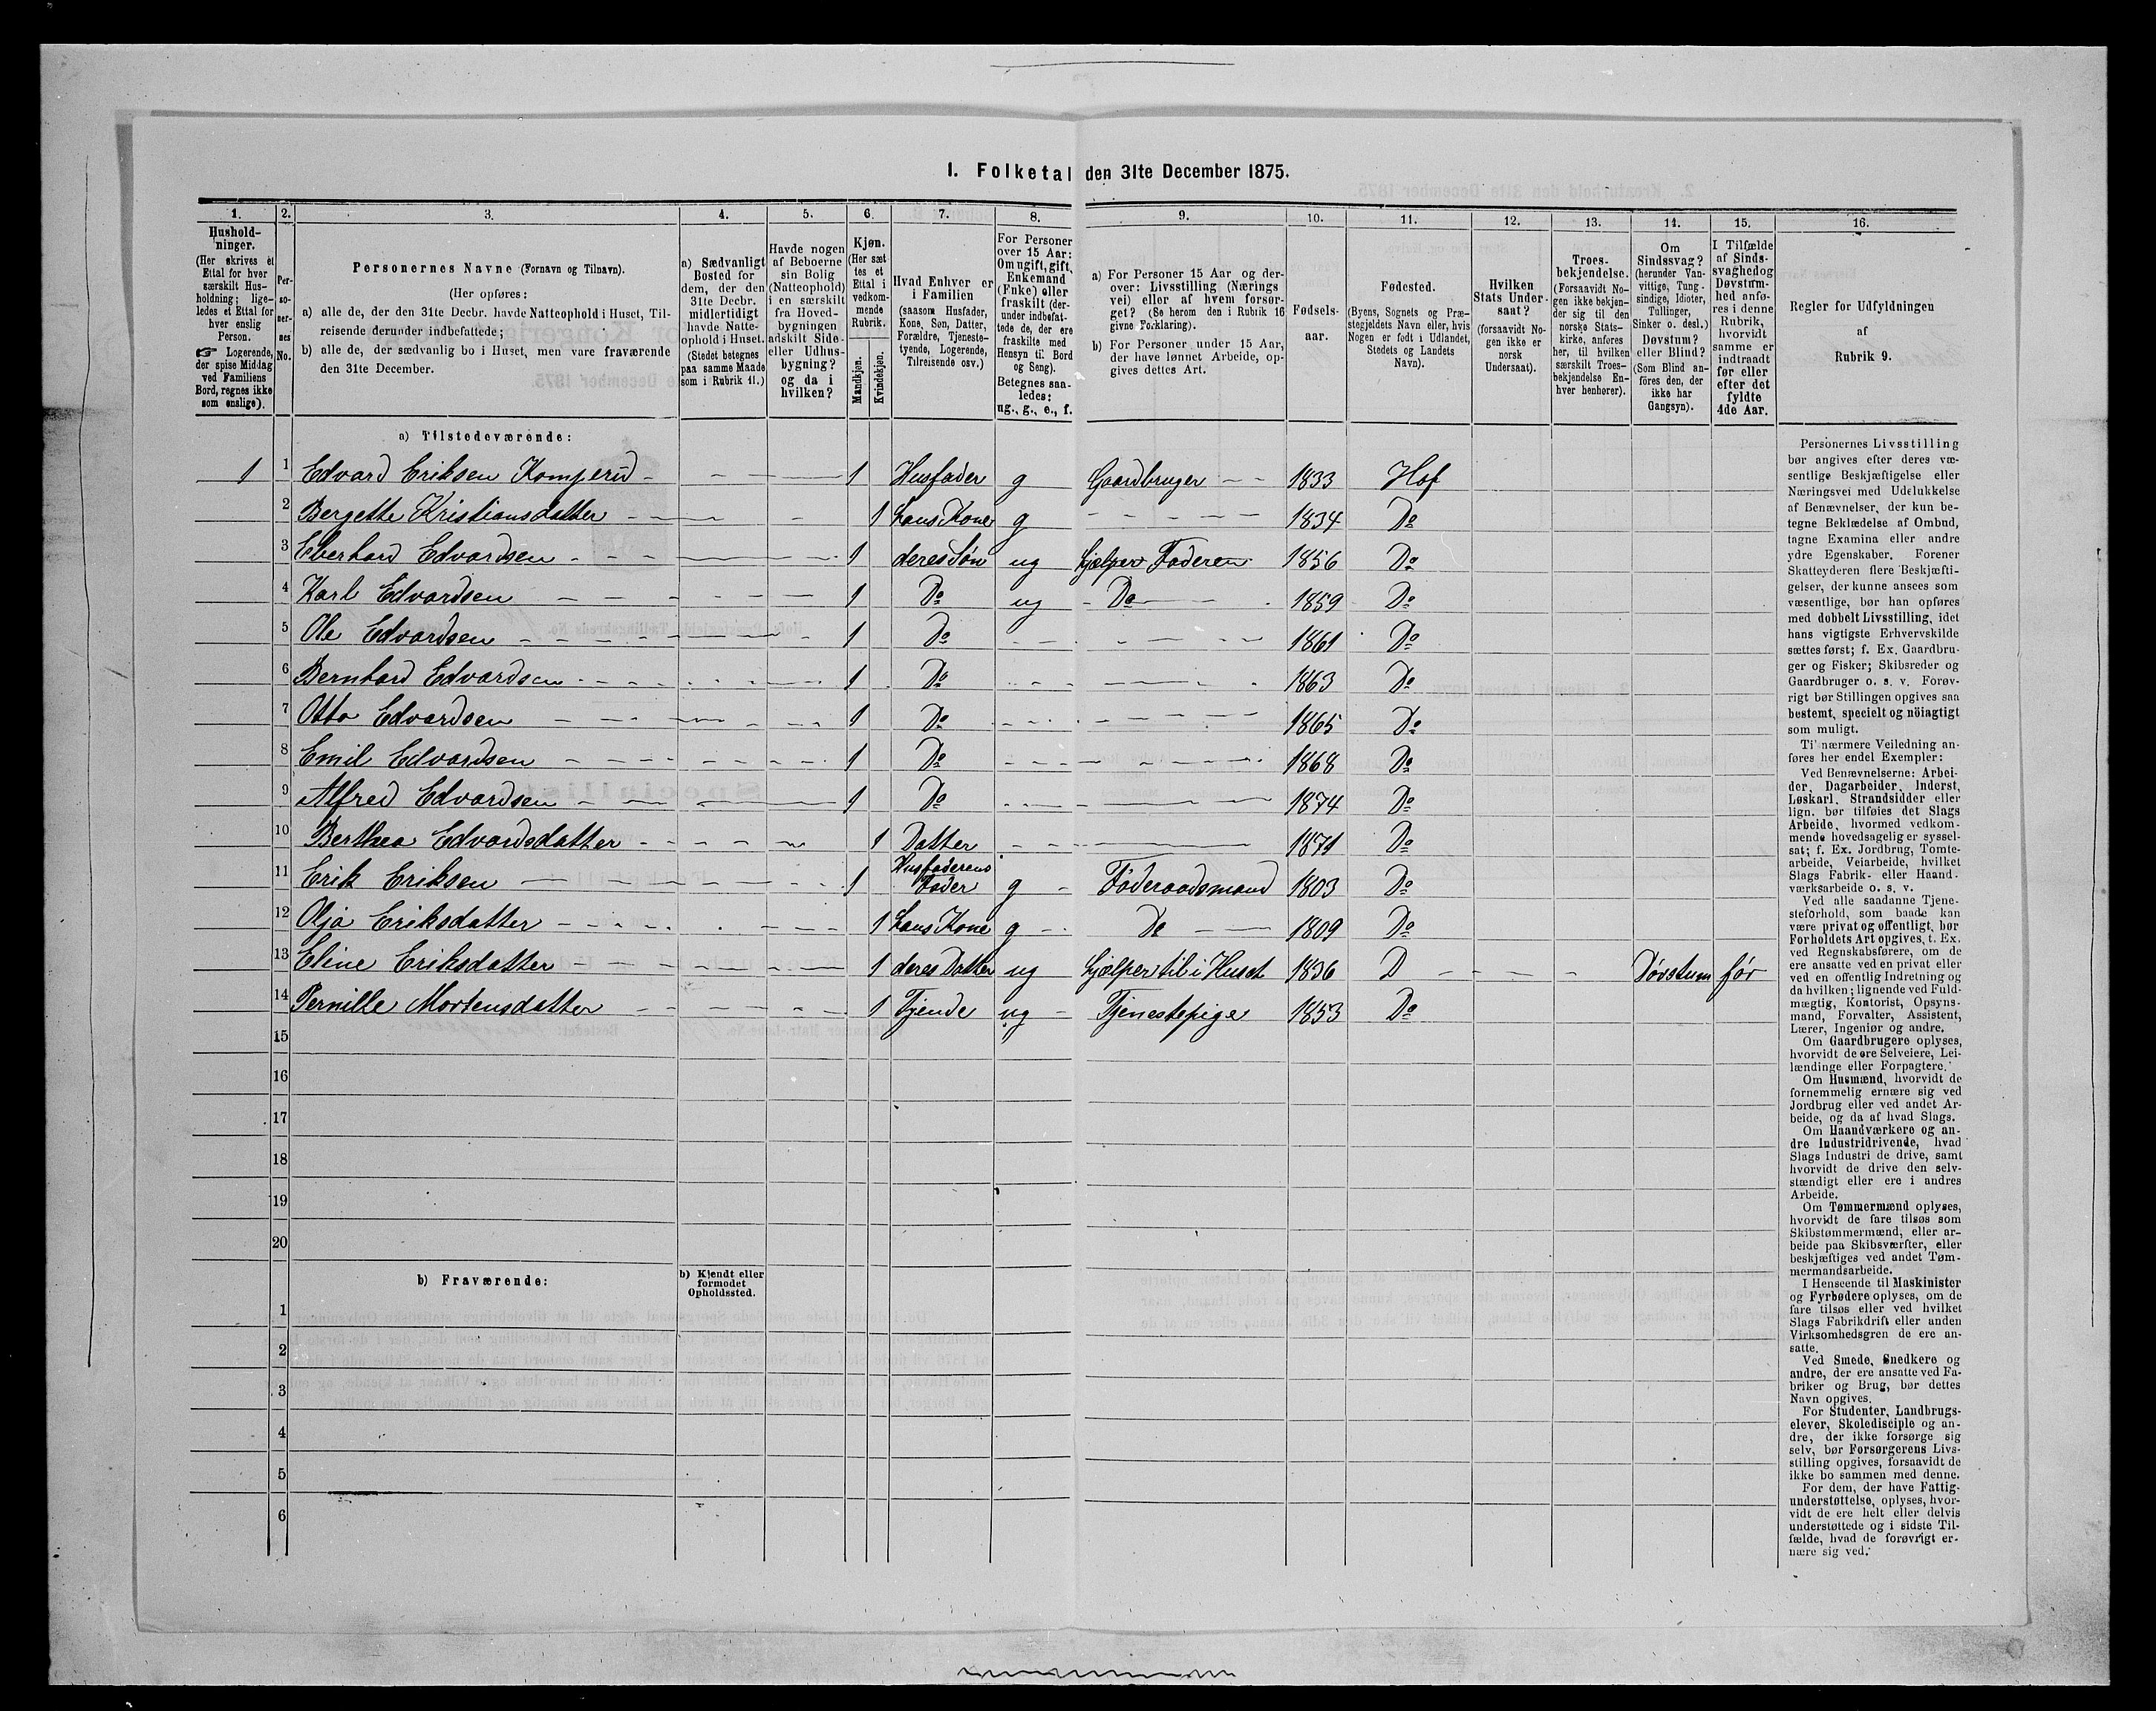 1. Folketal den 31te December 1875.
1.
2.
3.
4.
5.
6.
7.
8.
9.
10.
11.
12.
13.
14.
15.
16.
Hushold-
ninger.
(Her skrives et
Ettal for hver
særskilt Hus-
holdning; lige-
ledes et Ettal for
hver enslig
Person.
☞ Logerende,
der spise Middag
ved Familiens
Bord, regnes ikke
som enslige).
Per-
so-
ner-
nes
No.
Personernes Navne (Fornavn og Tilnavn).
(Her opføres:
a) alle de, der den 31te Decbr. havde Natteophold i Huset, Til-
reisende derunder indbefattede;
b) alle de, der sædvanlig bo i Huset, men vare fraværende
den 31te December.
a) Sædvanligt
Bosted for
dem, der den
31te Decbr.
midlertidigt
havde Natte-
ophold i Huset.
(Stedet betegnes
paa samme Maade
som i Rubrik 11.)
Havde nogen
af Beboerne
sin Bolig
(Natteophold)
i en særskilt
fra Hoved-
bygningen
adskilt Side-
eller Udhus-
bygning?
og da i
hvilken?
Kjøn.
(Her sæt
tes et
Ettal i
vedkom-
mende
Rubrik.
Mandkjøn.
Kvindekjøn.
Hvad Enhver er
i Familien
(saasom Husfader,
Kone, Søn, Datter,
Forældre, Tjeneste-
tyende, Logerende,
Tilreisende osv.)
For Personer
over 15 Aar:
Om ugift, gift,
Enkemand
(Enke) eller
fraskilt (der-
under indbefat-
tede de, der ere
fraskilte med
Hensyn til Bord
og Seng).
Betegnes saa-
ledes:
ug., g., e., f.
a) For Personer 15 Aar og der-
over: Livsstilling (Nærings
vei) eller af hvem forsør-
get? (Se herom den i Rubrik 16
givne Forklaring).
b) For Personer under 15 Aar,
der have lønnet Arbeide, op-
gives dettes Art.
Fødsels-
aar.
Fødested.
(Byens, Sognets og Præ-
stegjeldets Navn eller, hvis
Nogen er født i Udlandet,
Stedets og Landets
Navn).
Hvilken
Stats Under-
saat?
(forsaavidt No-
gen ikke er
norsk
Undersaat).
Troes-
bekjendelse.
(Forsaavidt No-
gen ikke bekjen-
der sig til den
norske Stats-
kirke, anføres
her, til hvilken
særskilt Troes-
bekjendelse En-
hver henhører).
Om
Sindssvag?
(herunder Van-
vittige, Tung-
sindige, Idioter,
Tullinger,
Sinker o. desl.)
Døvstum?
eller Blind?
(Som Blind an-
føres den, der
ikke har
Gangsyn).
I Tilfælde
af Sinds-
svaghedog
Døvstum-
hed anfø-
res i denne
Rubrik,
hvorvidt
samme er
indtraadt
før eller
efter det
fyldte
4de Aar.
Regler for Udfyldningen
af
Rubrik 9.
a) Tilstedeværende:
1 1 Edvard Eriksen Komperud 1 Husfader g Gaardbruger 1833 Hof
2 Bergette Kristiansdatter 1 hans Kone g 1834 Do
3 Eberhard Edvardsen 1 deres Søn ug hjælper Faderen 1856 Do
4 Karl Edvardsen 1 Do ug Do 1859 Do
5 Ole Edvardsen 1 Do 1861 Do
6 Bernhard Edvardsen 1 Do 1863 Do
7 Otto Edvardsen 1 Do 1865 Do
8 Emil Edvardsen 1 Do 1868 Do
9 Alfred Edvardsen 1 Do 1874 Do
10 Berthea Edvardsdatter 1 Datter 1871 Do
11 Erik Eriksen 1 Husfaderens Fader g Föderaadsmand 1803 Do
12 Olja Eriksdatter 1 hans Kone g Do 1809 Do
13 Eline Eriksdatter 1 deres Datter ug hjælper til i Huset 1836 D Døvstum før
14 Pernille Mortensdatter 1 Tjende ug Tjenestepige 1853 Do
15
16
17
18
19
20
b) Fraværende:
b) Kjendt eller
formodet
Opholdssted.
1
2
3
4
5
6
Personernes Livsstilling
bør angives efter deres væ-
sentlige Beskjæftigelse eller
Næringsvei med Udelukkelse
af Benævnelser, der kun be-
tegne Beklædelse af Ombud,
tagne Examina eller andre
ydre Egenskaber. Forener
Skatteyderen flere Beskjæfti-
gelser, der kunne ansees som
væsentlige, bør han opføres
med dobbelt Livsstilling, idet
hans vigtigste Erhvervskilde
sættes først; f. Ex. Gaardbru-
ger og Fisker; Skibsreder og
Gaardbruger o. s. v. Forøv-
rigt bør Stillingen opgives saa
bestemt, specielt og nöiagtigt
som muligt.
Ti' nærmere Veiledning an-
føres her endel Exempler:
Ved Benævnelserne: Arbei-
der, Dagarbeider, Inderst,
Løskarl, Strandsidder eller
lign. bør tilføies det Slags
Arbeide, hvormed vedkom-
mende hovedsagelig er syssel-
sat; f. Ex. Jordbrug, Tomte-
arbeide, Veiarbeide, hvilket
Slags Fabrik- eller Haand-
værksarbeide o. s. v.
Ved alle saadanne Tjene-
steforhold, som baade kan
være privat og offentligt, bør
Forholdets Art opgives, t. Ex.
ved Regnskabsførere, om de
ere ansatte ved en privat eller
ved en offentlig Indretning og
da hvilken; lignende ved Fuld-
mægtig, Kontorist, Opsyns-
mand, Forvalter, Assistent,
Lærer, Ingeniør og andre.
Om Gaardbrugere oplyses,
hvorvidt de ere Selveiere, Lei-
lændinge eller Forpagtere.
Om Husmænd, hvorvidt de
fornemmelig ernære sig ved
Jordbrug eller ved andet Ar-
beide, og da af hvad Slags.
Om Haandværkere og an-
dre Industridrivende, hvad
Slags Industri de drive, samt
hvorvidt de drive den selv-
stændigt eller ere i andres
Arbeide.
Om Tømmermænd oplyses,
hvorvidt de fare tilsøs som
Skibstømmermænd, eller ar-
beide paa Skibsværfter, eller
beskjæftiges ved andet Tøm-
mermandsarbeide.
I Henseende til Maskinister
og Fyrbødere oplyses, om de
fare tilsøs eller ved hvilket
Slags Fabrikdrift eller anden
Virksomhedsgren de ere an-
satte.
Ved Smede, Snedkere og
andre, der ere ansatte ved Fa-
briker og Brug, bør dettes
Navn opgives.
For Studenter, Landbrugs-
elever, Skoledisciple og an-
dre, der ikke forsørge sig
selv, bør Forsørgerens Livs-
stilling opgives, forsaavidt de
ikke bo sammen med denne.
For dem, der have Fattig-
understøttelse, oplyses, hvor-
vidt de ere helt eller delvis
understøttede og i sidste Til-
fælde, hvad de forøvrigt er-
nære sig ved.